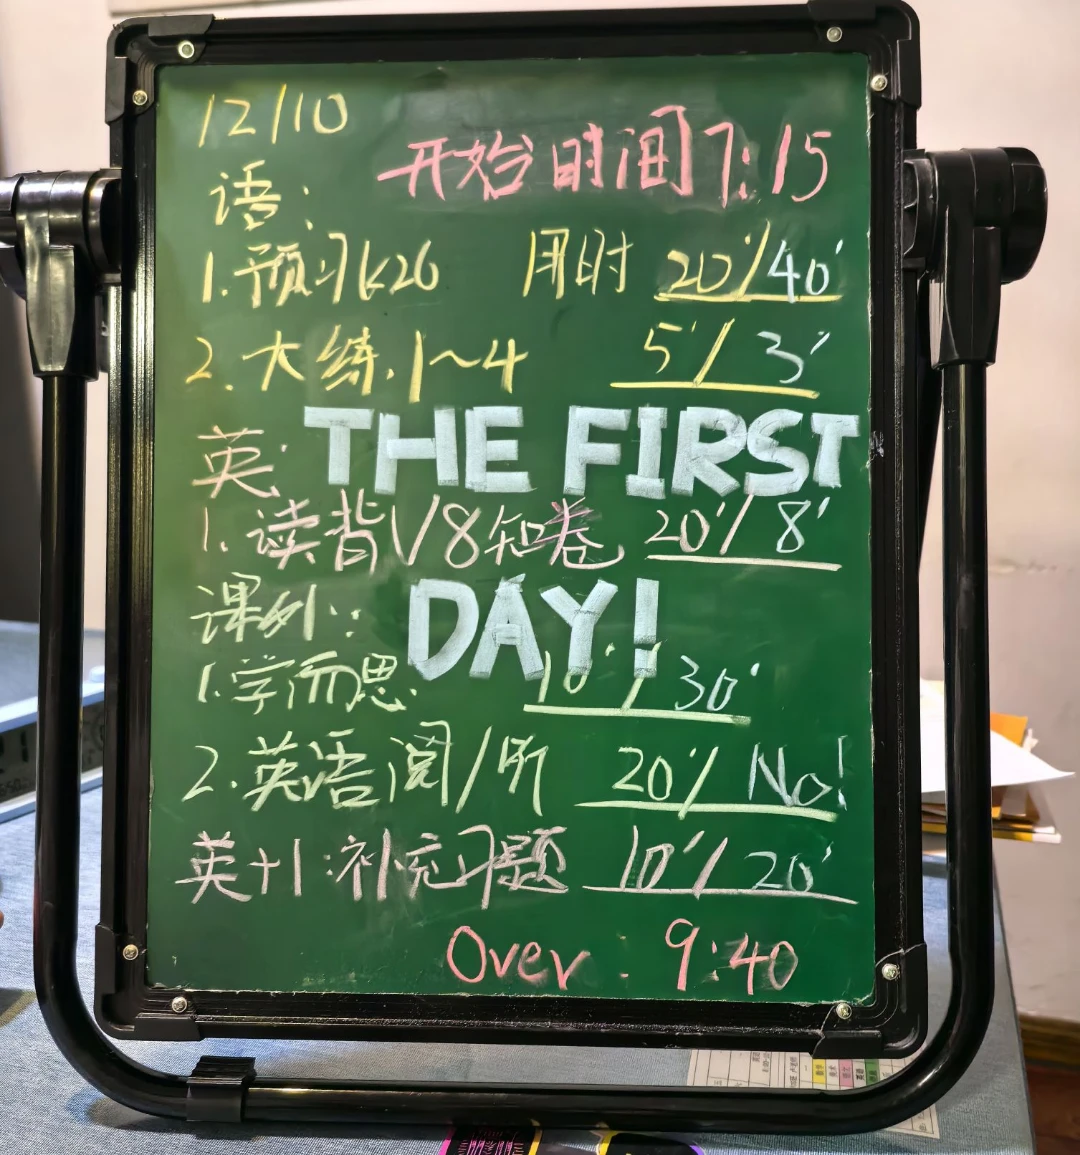 12/10
开始时间7:15
语:
1.预习k26 用时 20'/40'
2.大练.1~4 5'/3'
英:
THE FIRST
1.读背V8知卷 20'/8'
课外:
DAY!
1.学而思. 10'/30'
2.英语阅/听 20'/No!
英+1:补充习题 10'/20'
Over. 9:40